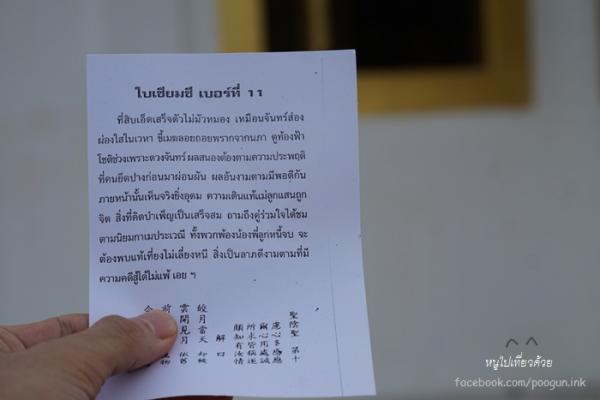 ใบเซียมซี เบอร์ที่ 11
ที่สิบเอ็ดเสร็จตัวไม่มัวหมอง เหมือนจันทร์ส่อง
ผ่องใสในเวหา ขี้เมฆลอยถอยพรากจากนภา ดูท้องฟ้า
โชติช่วงเพราะดวงจันทร์ ผลสนองต้องตามความประพฤติ
ที่คนยึดปางก่อนมาผ่อนผัน ผลอันงามตามมีพอดีกัน
ภายหน้านั้นเห็นจริงยิ่งอุดม ความเดินแท้แม่ลูกแสนถูก
จิต สิ่งที่คิดบำเพ็ญเป็นเสร็จสม ถามถึงคู่ร่วมใจได้ชม
ตามนิยมกาเมประเวณี ทั้งพวกพ้องน้องพี่ลูกหนี้จบ จะ
ต้องพบแท้เที่ยงไม่เลี่ยงหนี สิ่งเป็นลาภดีงามตามที่มี
ความคดีสู้ได้ไม่แพ้ เอย ฯ
聖陰聖 第十
慮心多
爾心用處誠
所求皆稱遂
願知有
解曰
皎月當天
雲開見月
หนูไปเที่ยวด้วย
facebook.com/poogun.ink